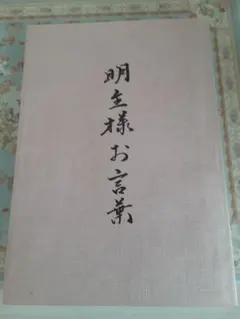 明主様お言葉